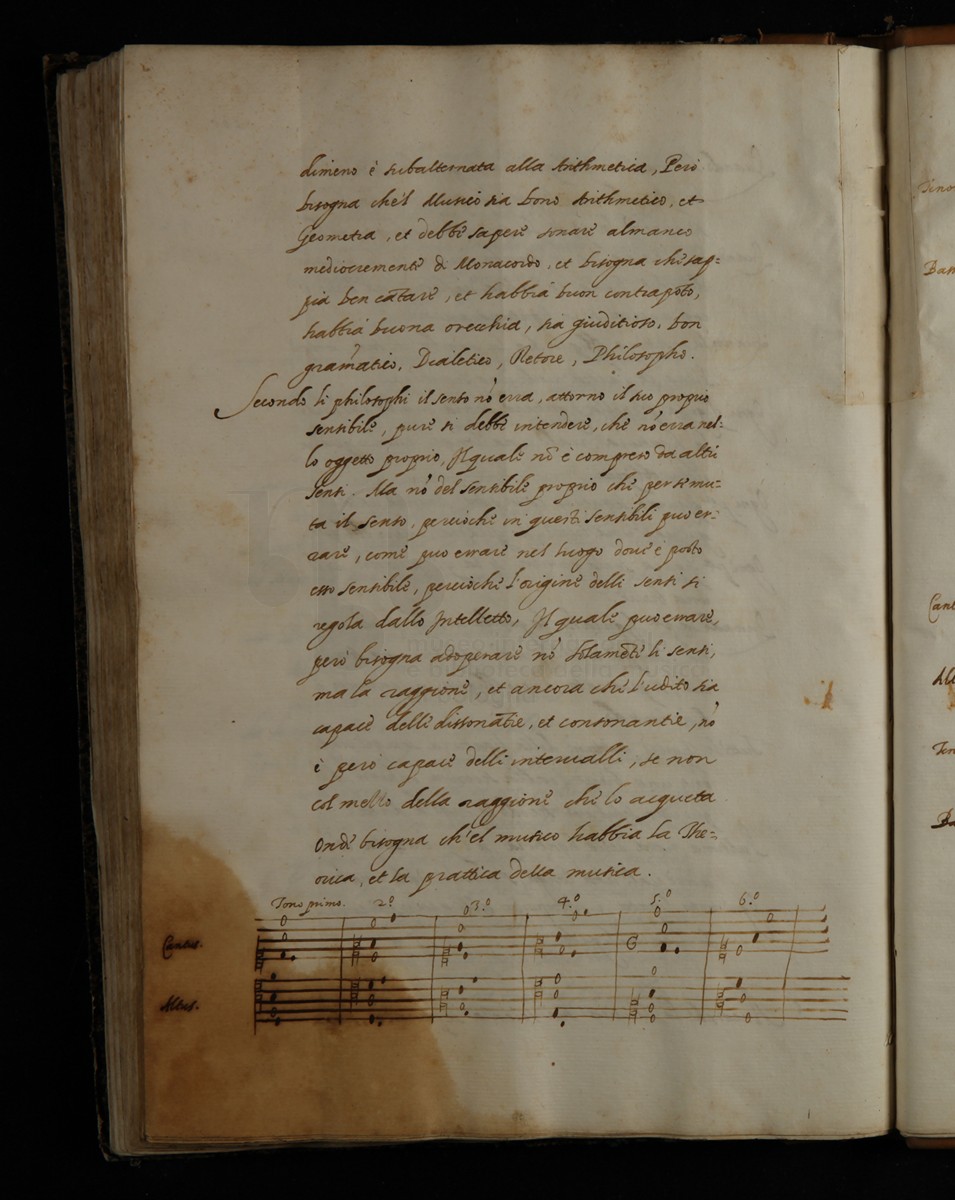 dimeno è subalternata alla Arithmetica, Però
bisogna ch'el Musico sia bono Arithmetico, et
Geometra, et debbe sapere sonare almanco
mediocremente di Monacordo, et bisogna che sap=
pia ben cātare, et habbia buon contrapōto,
habbia buona orecchia, sia giuditioso, bon
gramatico, Dialetico, Retore, Philosopho.
Secondo li philosophi il senso nō erra, attorno il suo proprio
sensibile, pure si debbe intendere, che nō erra nel=
lo oggetto proprio, Il quale nō è compreso da altri
sensi. Ma nō del sensibile proprio che per si mu=
ta il senso, perciòche in questi sensibili puo er=
rare, come puo errare nel luogo dove è posto
esso sensibile, perciòche l'origine delli sensi si
regola dallo Intelletto, Il quale puo errare,
però bisogna adoperare nō solamēte li sensi,
ma la raggione, et ancora che l'udito sia
capace delle dissonātie, et consonantie, nō
è però capace delli intervalli, se non
col mezzo della raggione che lo acqueta
onde bisogna ch'el musico habbia la The=
orica, et la prattica della musica.
Tono primo. 2.º 3.º 4.º 5.º 6.º
Cantus.
G
Altus.
Teno
Bass
Cant
Al
Ten
Ba